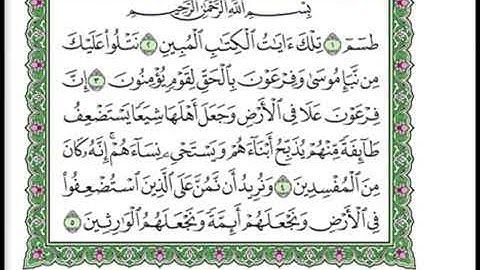 بِسْمِ اللَّهِ الرَّحْمَٰنِ الرَّحِيمِ
طسٓمٓ ١ تِلْكَ ءَايَٰتُ الْكِتَٰبِ الْمُبِينِ ٢ نَتْلُوا۟ عَلَيْكَ
مِن نَّبَإِ مُوسَىٰ وَفِرْعَوْنَ بِالْحَقِّ لِقَوْمٍ يُؤْمِنُونَ ٣ إِنَّ
فِرْعَوْنَ عَلَا فِي الْأَرْضِ وَجَعَلَ أَهْلَهَا شِيَعًا يَسْتَضْعِفُ
طَآئِفَةً مِّنْهُمْ يُذَبِّحُ أَبْنَآءَهُمْ وَيَسْتَحْىِۦ نِسَآءَهُمْ ۚ إِنَّهُۥ كَانَ
مِنَ الْمُفْسِدِينَ ٤ وَنُرِيدُ أَن نَّمُنَّ عَلَى الَّذِينَ اسْتُضْعِفُوا۟
فِي الْأَرْضِ وَنَجْعَلَهُمْ أَئِمَّةً وَنَجْعَلَهُمُ الْوَٰرِثِينَ ٥